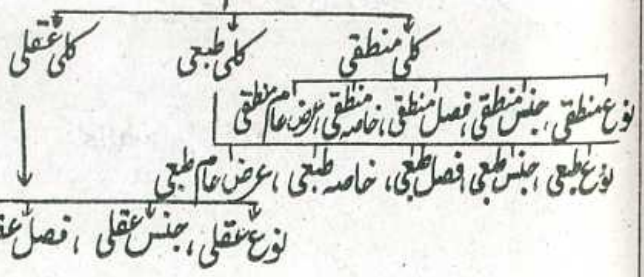 کلی منطقی کلی طبعی کلی عقلی
نوع منطقی، جنس منطقی، فصل منطقی، خاصہ منطقی، عرض عام منطقی
نوع طبعی، جنس طبعی، فصل طبعی، خاصہ طبعی، عرض عام طبعی
نوع عقلی، جنس عقلی، فصل